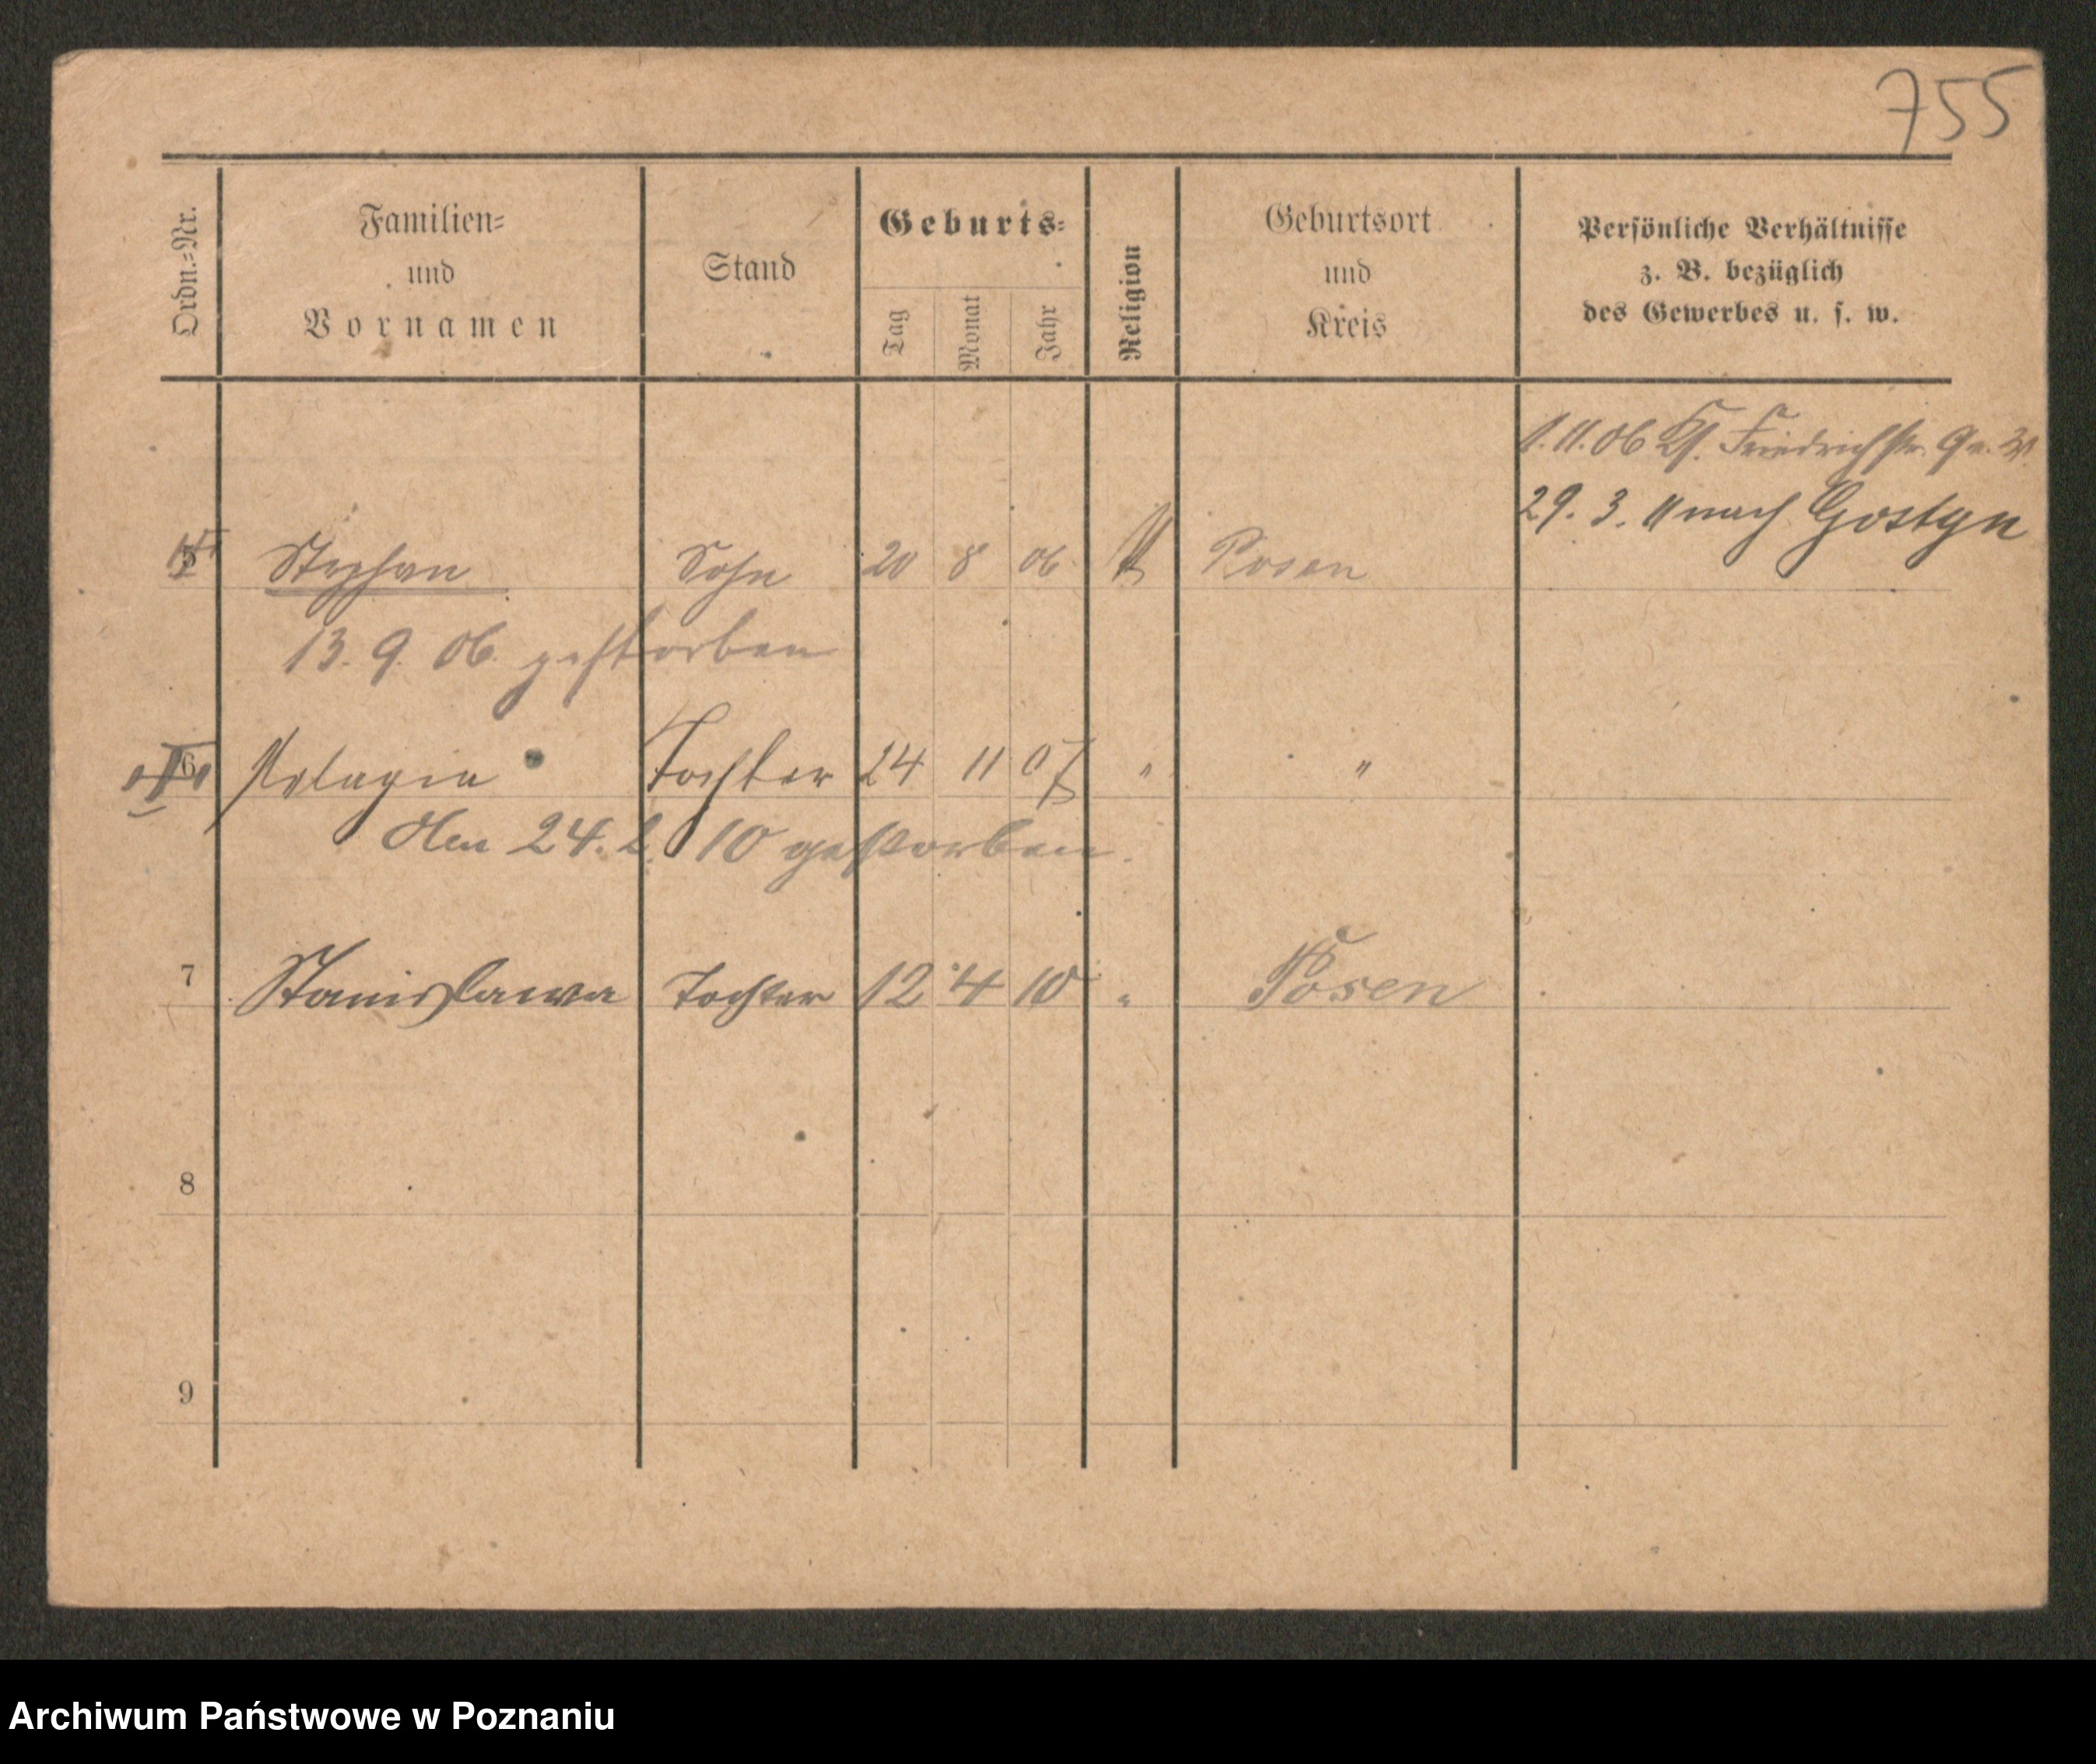 755
Ordn.-Nr.
Familien-
und
Vornamen
Stand
Geburts-
Tag
Monat
Jahr
Religion
Geburtsort
und
Kreis
Persönliche Verhältnisse
z. B. bezüglich
des Gewerbes u. s. w.
1.11.06 Friedrichstr. 9
29. 3. 11 nach Gostyn
5 Stephan Sohn 20 8 06 Posen
13. 9. 06. gestorben
6 Pelagia Tochter 24 11 07 " "
Am 24. 2. 10 gestorben.
7 Stanislawa Tochter 12 4 10 " Posen
8
9
Archiwum Państwowe w Poznaniu